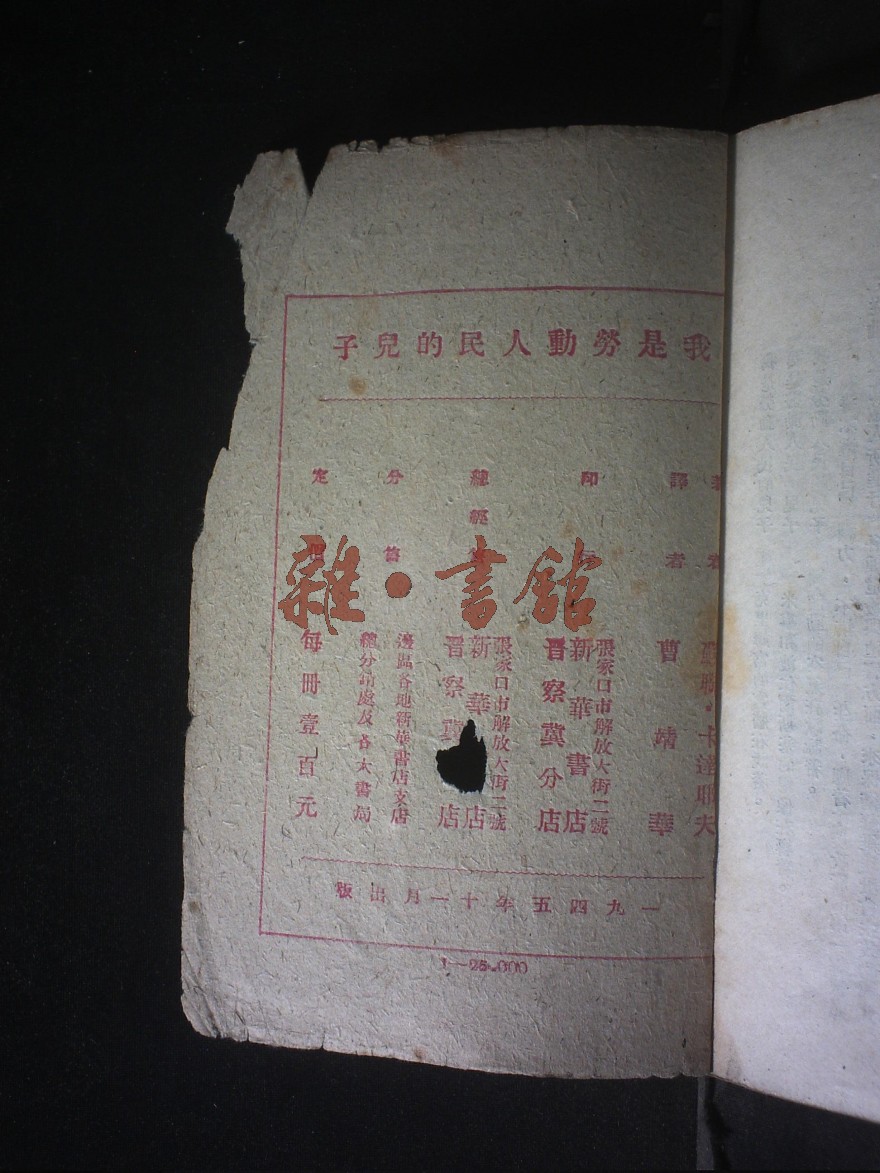 我是勞動人民的兒子
著者 蘇聯·卡達耶夫
譯者 曹靖華
印
張家口市解放大街二號
新華書店
晋察冀分店
總經
張家口市解放大街二號
新華 店
晋察冀 店
分
邊區各地新華書店支店
總分銷處及各大書局
定 每冊壹百元
一九四五年十一月出版
1—25.000
雜·書舘